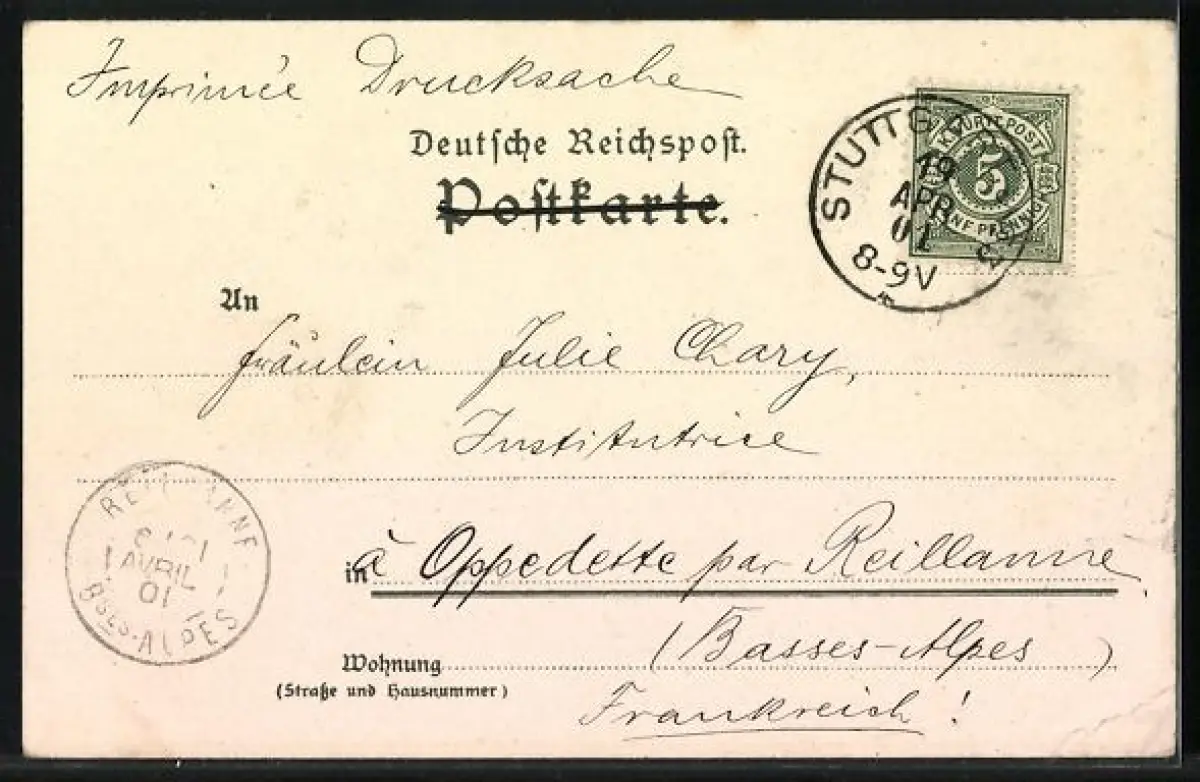 Imprimée Drucksache
Deutsche Reichspost.
Postkarte.
K. WÜRTT. POST
5
FÜNF PFENNIG
STUTTGART
19
APR
01
8-9V
An
Fräulein Julie Chary,
Institutrice
in à Oppedette par Reillanne
(Basses-Alpes)
Frankreich!
Wohnung
(Straße und Hausnummer)
REILLANNE
AVRIL
01
BSES-ALPES